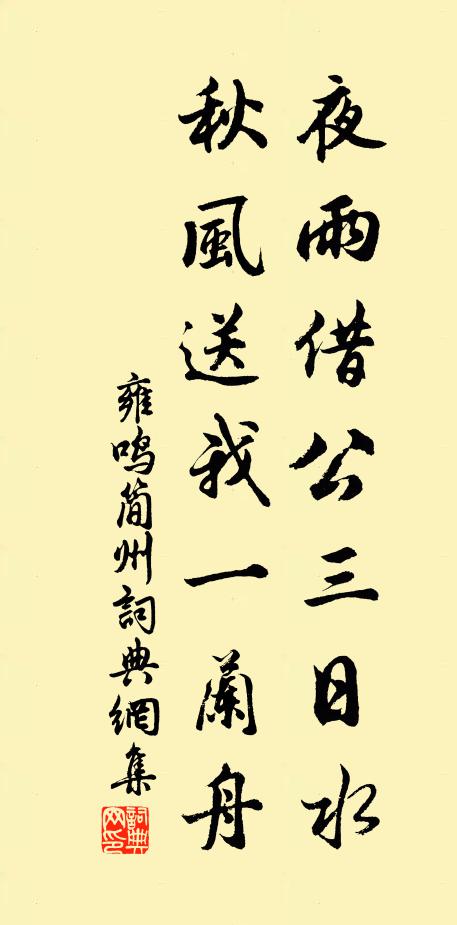 夜雨借公三日水
秋風送我一蘭舟
雍鳴簡州詞典網集
詞典
网印